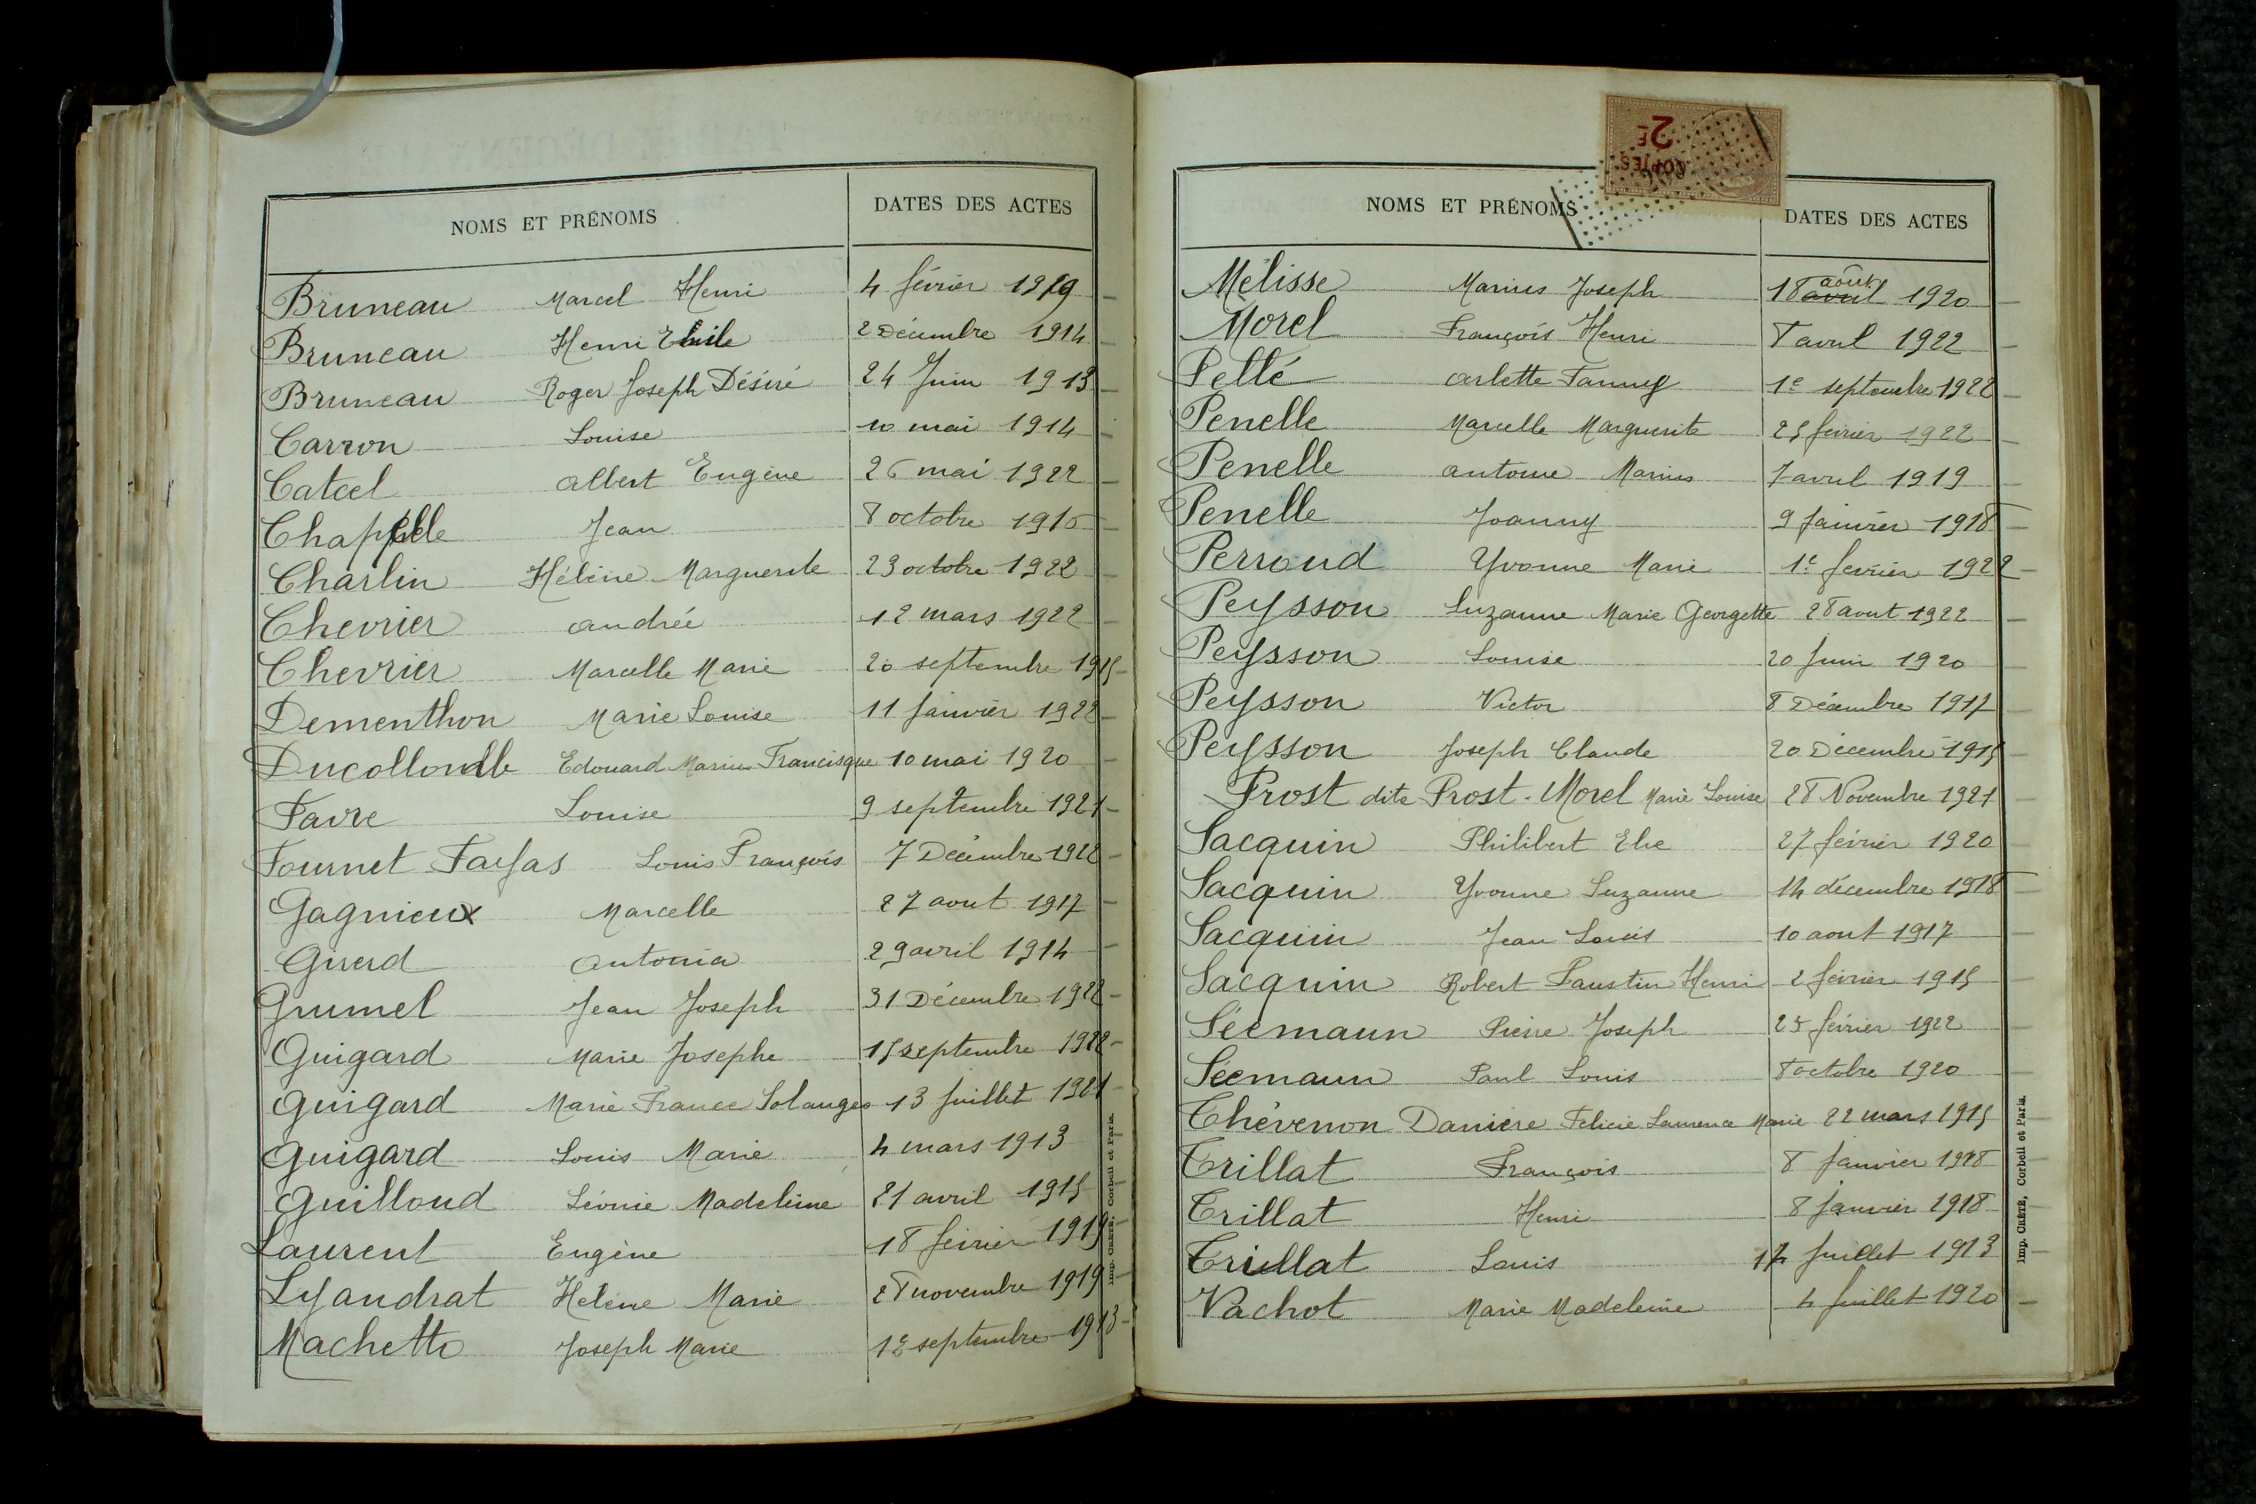 NOMS ET PRÉNOMS DATES DES ACTES
Bruneau Marcel Henri 4 février 1919
Bruneau Henri Emile 2 Décembre 1914
Bruneau Roger Joseph Désiré 24 Juin 1913
Carron Louise 10 mai 1914
Catcel Albert Eugène 26 mai 1922
Chapelle Jean 8 octobre 1910
Charlin Hélène Marguerite 23 octobre 1922
Chevrier andrée 12 mars 1922
Chevrier Marcelle Marie 20 septembre 1915
Dementhon Marie Louise 11 janvier 1922
Ducollomb Edouard Marius Francisque 10 mai 1920
Favre Louise 9 septembre 1921
Fournet Fayas Louis François 7 Décembre 1922
Gagnieux Marcelle 27 aout 1917
Girerd antonia 29 avril 1914
Grumel Jean Joseph 31 Décembre 1922
Guigard Marie Josephe 15 septembre 1922
Guigard Marie France Solanges 13 juillet 1921
Guigard Louis Marie 4 mars 1913
Guilloud Léonie Madeleine 21 avril 1915
Laurent Eugène 18 février 1919
Lyandrat Helène Marie 28 novembre 1919
Machetto Joseph Marie 12 septembre 1913
Imp. CRÉTÉ, Corbeil et Paris.
2F
COPIES
NOMS ET PRÉNOMS DATES DES ACTES
août
Mélisse Marius Joseph 18 avril 1920
Morel François Henri 8 avril 1922
Pellé arlette Fanny 1e septembre 1922
Penelle Marcelle Marguerite 25 février 1922
Penelle antoine Marius 7 avril 1919
Penelle Joanny 9 janvier 1918
Perroud Yvonne Marie 1e février 1922
Peysson Suzanne Marie Georgette 28 aout 1922
Peysson Louise 20 Juin 1920
Peysson Victor 8 Décembre 1917
Peysson Joseph Claude 20 Décembre 1915
Prost dite Prost-Morel Marie Louise 28 Novembre 1921
Sacquin Philibert Elie 27 février 1920
Sacquin Yvonne Suzanne 14 décembre 1918
Sacquin Jean Louis 10 aout 1917
Sacquin Robert Faustin Henri 2 février 1915
Séemann Pierre Joseph 25 février 1922
Séemann Paul Louis 8 octobre 1920
Thévenon Danière Felicie Laurence Marie 22 mars 1915
Trillat François 8 janvier 1918
Trillat Henri 8 janvier 1918
Trillat Louis 14 juillet 1913
Vachot Marie Madeleine 4 juillet 1920
Imp. CRÉTÉ, Corbeil et Paris.